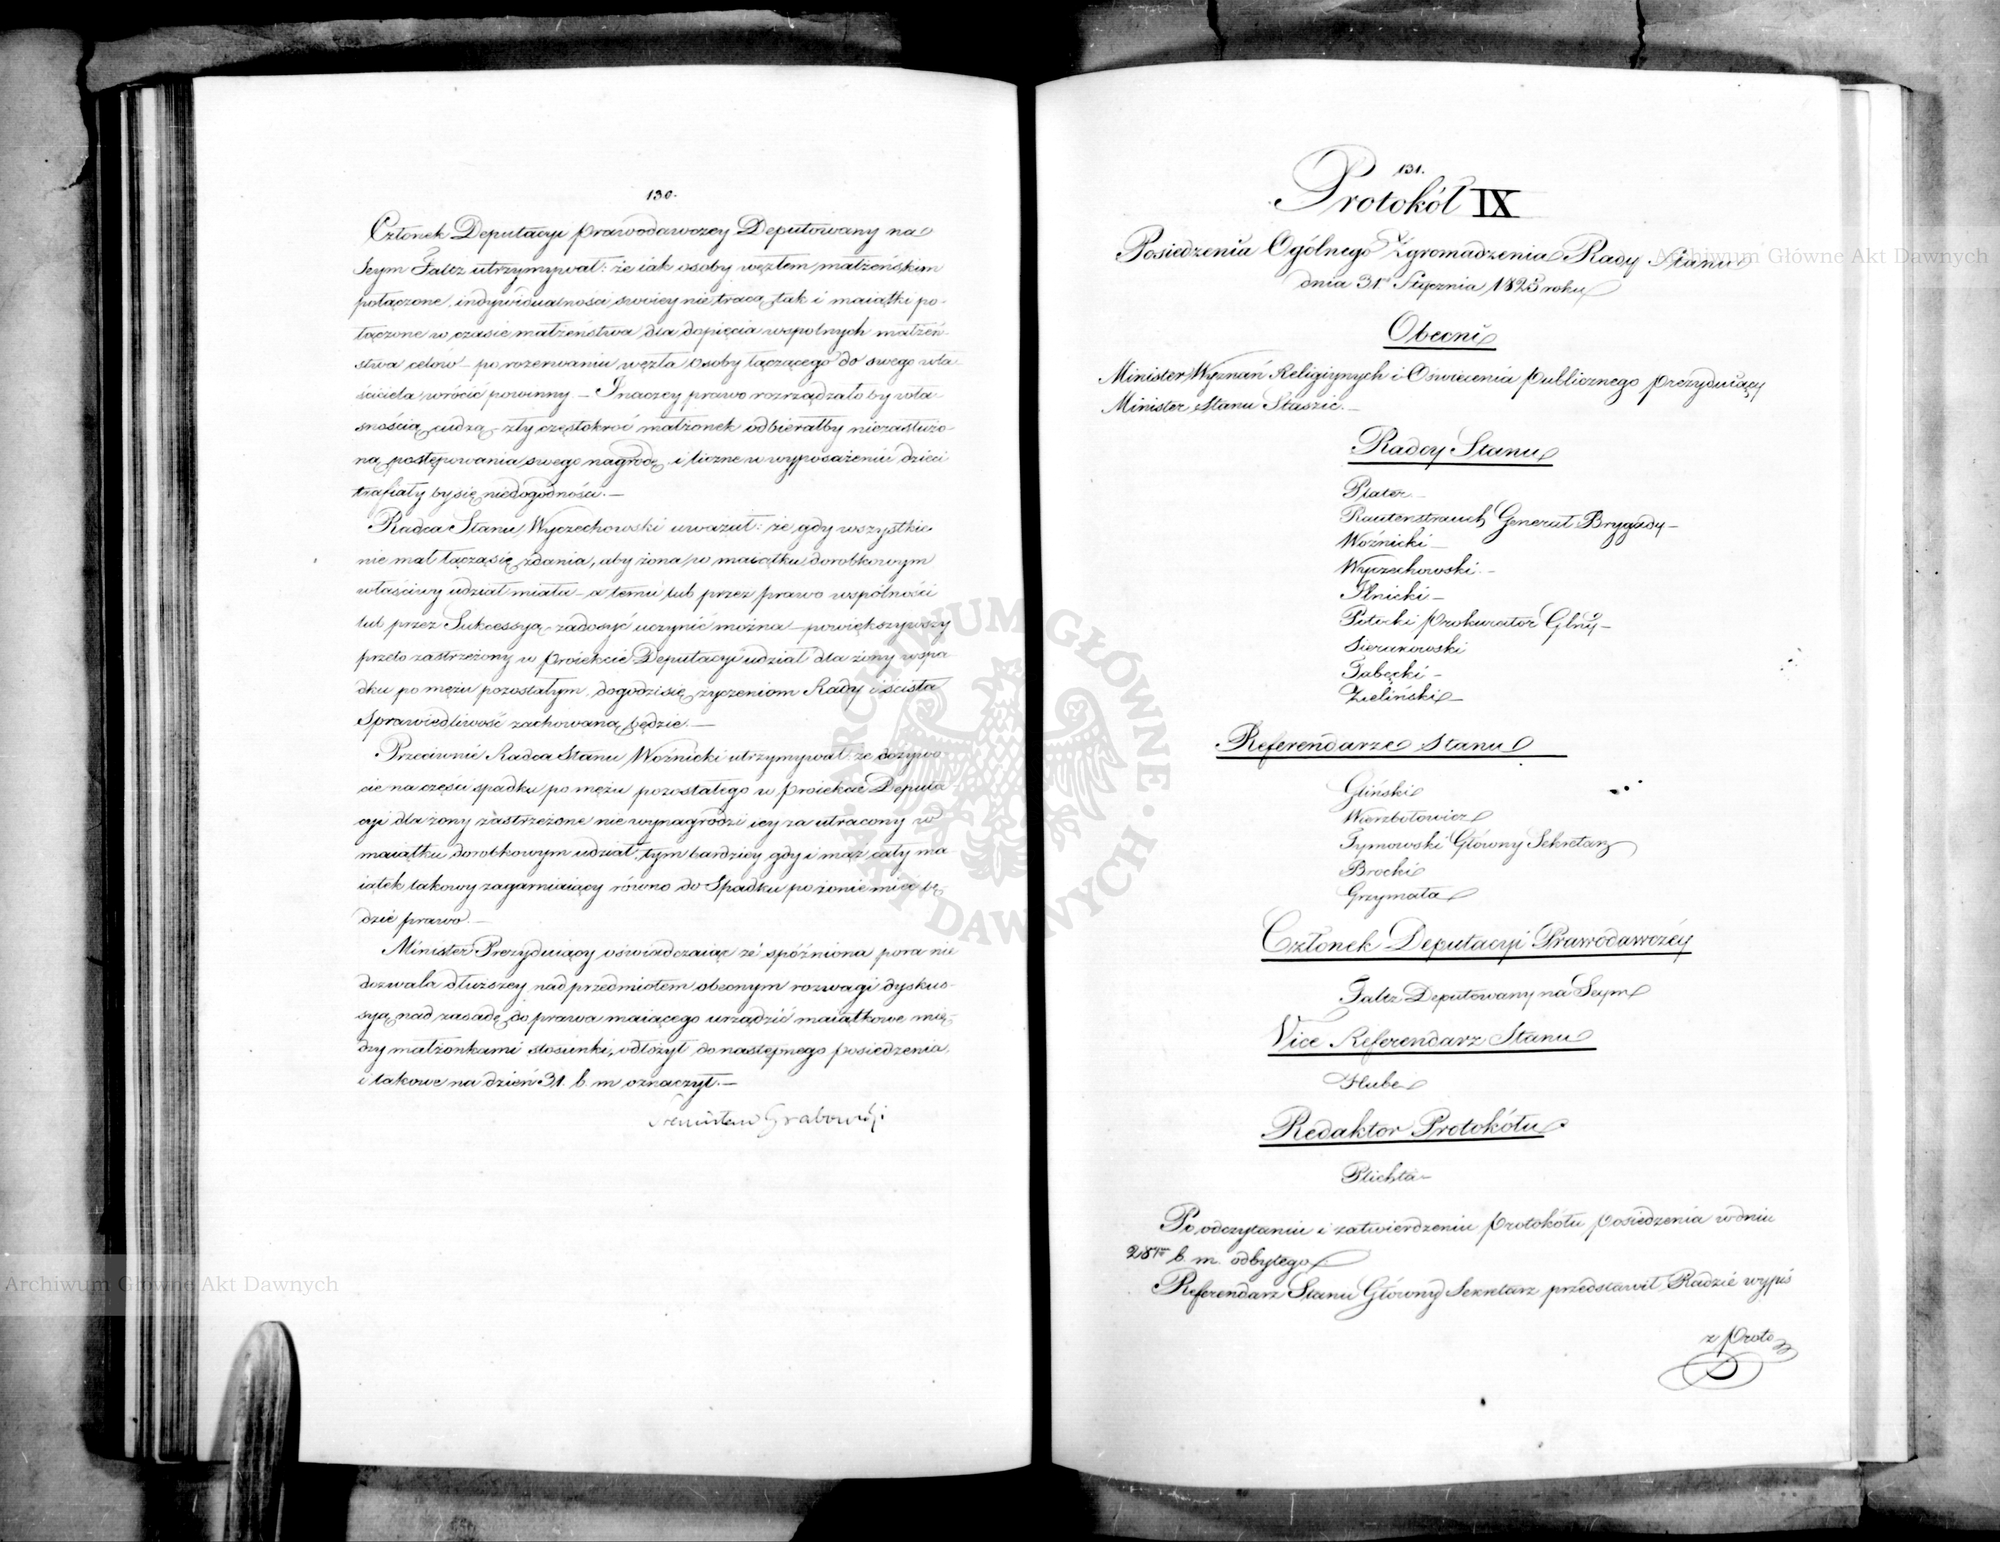 130.
Członek Deputacyi Prawodawczey Deputowany na
Seym Faltz utrzymywał: że iak osoby węzłem małżeńskim
połączone, indywidualności swoiey nie tracą, tak i maiątki po-
łączone w czasie małżeństwa dla dopięcia wspolnych małżeń-
stwa celów – po rozerwaniu węzła Osoby łączącego do swego wła-
ściciela wrócić powinny – Inaczey prawo rozrządzałoby wła-
snością cudzą – zły częstokroć małżonek odbierałby niezasłużo-
ną postępowania swego nagrodę, i liczne w wyposażeniu dzieci
trafiały by się niedogodności. –
Radca Stanu Wyczechowski uważał: że gdy wszystkie
nie mal łączą się zdania, aby żona w maiątku dorobkowym
właściwy udział miała – a temu lub przez prawo wspólności
lub przez Sukcessyą – zadosyć uczynić można – powiększywszy
przeto zastrzeżony w Proiekcie Deputacyi udział dla żony w spa-
dku po mężu pozostałym, dogodzi się życzeniom Rady i ścisła
Sprawiedliwość zachowaną będzie. –
Przeciwnie Radca Stanu Woźnicki utrzymywał: że dożywo-
cie na części spadku po mężu pozostałego w Proiekcie Deputa-
cyi dla żony zastrzeżone nie wynagrodzi iey za utracony w
maiątku dorobkowym udział, tym bardziey gdy i mąż cały ma-
iątek takowy zagarniaiący równo do Spadku po żonie mieć bę-
dzie prawo. –
Minister Prezyduiący oświadczaiąc że spóźniona pora nie
dozwala dłuższey nad przedmiotem obecnym rozwagi dyskus-
syą nad zasadą do prawa maiącego urządzić maiątkowe mię-
dzy małżonkami stosunki, odłożył do następnego posiedzenia,
i takowe na dzień 31. b. m oznaczył. –
Stanisław Grabowski
131.
Protokół IX
Posiedzenia Ogólnego Zgromadzenia Rady Stanu
dnia 31º Stycznia 1825 roku
Obecni
Minister Wyznań Religiynych i Oświecenia Publicznego Prezyduiący
Minister Stanu Staszic. –
Radcy Stanu
Plater –
Rautenstrauch Generał Brygady –
Woźnicki –
Wyczechowski. –
Ilnicki –
Potocki Prokurator Glny –
Sierakowski
Tubęcki –
Zieliński –
Referendarze Stanu
Gliński
Warzbołowicz
Tymowski Główny Sekretarz
Brocki
Grzymała
Członek Deputacyi Prawodawczéy
Faltz Deputowany na Seym
Vice Referendarz Stanu
Hube
Redaktor Protokółu
Plichta –
Po odczytaniu i zatwierdzeniu Protokółu Posiedzenia w dniu
28ym b. m. odbytego
Referendarz Stanu Główny Sekretarz przedstawił Radzie wypis
z Proto
Archiwum Główne Akt Dawnych
Archiwum Główne Akt Dawnych
ARCHIWUM GŁÓWNE · AKT DAWNYCH ·